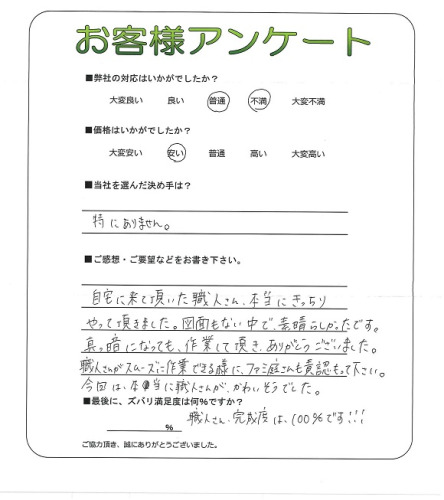 お客様アンケート
■弊社の対応はいかがでしたか?
大変良い 良い 普通 不満 大変不満
■価格はいかがでしたか?
大変安い 安い 普通 高い 大変高い
■当社を選んだ決め手は?
特にありません。
■ご感想・ご要望などをお書き下さい。
自宅に来て頂いた職人さん、本当にきっちり
やって頂きました。図面もない中で、素晴らしかったです。
真っ暗になっても、作業して頂き、ありがとうございました。
職人さんがスムーズに作業できる様に、ファミ庭さんも責認もって下さい。
今回は、本当に職人さんが、かわいそうでした。
■最後に、ズバリ満足度は何%ですか?
% 職人さん、完成度は、100%です!!!
ご協力頂き、誠にありがとうございました。